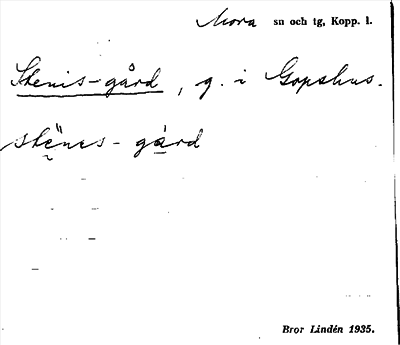 Mora sn och tg, Kopp. l.
Stenis-gård, g. i Gopshus.
Bror Lindén 1935.